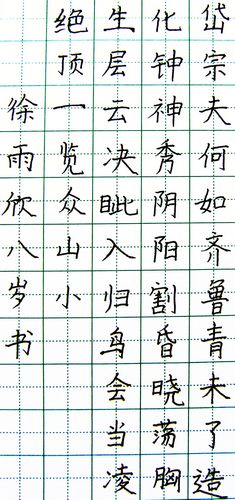 岱宗夫何如齐鲁青未了造
化钟神秀阴阳割昏晓荡胸
生层云决眦入归鸟会当凌
绝顶一览众山小
徐雨欣八岁书